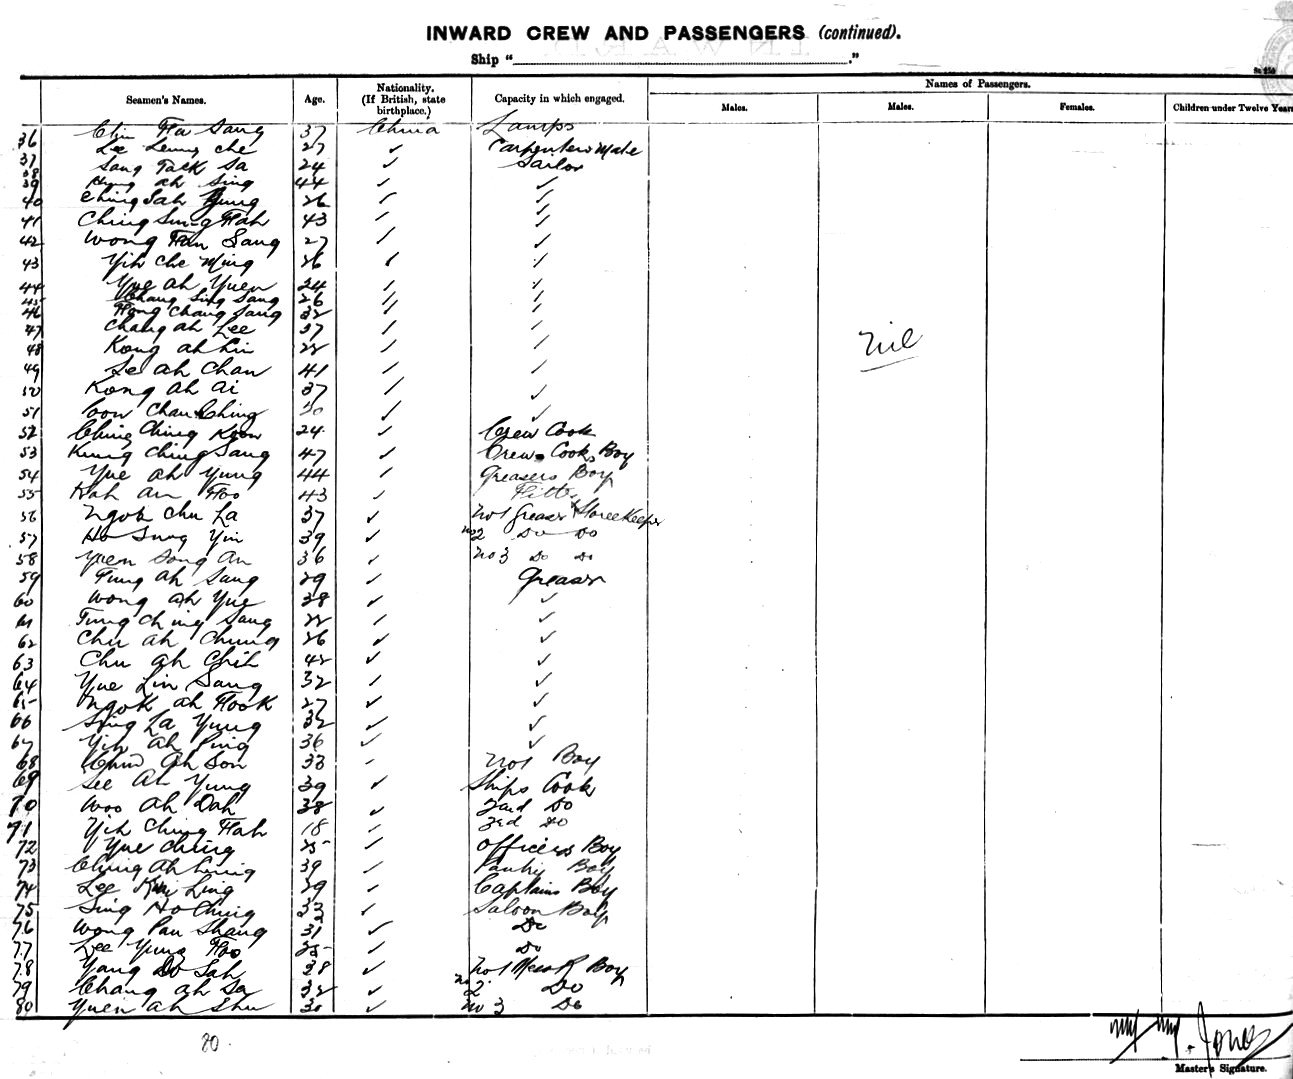 INWARD CREW AND PASSENGERS (continued).
Ship " ."
Seamen's Names. Age. Nationality. (If British, state birthplace.) Capacity in which engaged. Names of Passengers.
Males. Males. Females. Children under Twelve Years
36 Chin Ha Sang 37 China Lamps
37 Lee Leung Che 27 ✓ Carpenters Mate
38 Sang Tack Sa 24 ✓ Sailor
39 ah Sing 44 ✓ ✓
40 Ching Sah 26 ✓ ✓
41 Ching Sung Hah 43 ✓ ✓
42 Wong Han Sang 27 ✓ ✓
43 Yih Che Ming 26 ✓ ✓
44 Yue ah Yuen 24 ✓ ✓
45 Chang Sing Sang 26 ✓ ✓
46 Hong Chang Sang 32 ✓ ✓
47 Chang ah Lee 37 ✓ ✓
48 Kong ah Lin 22 ✓ ✓
49 Se ah Chan 41 ✓ ✓
50 Kong ah ai 37 ✓ ✓
51 Chan Ching 30 ✓ ✓
52 Ching Ching Koon 24 ✓ Crew Cook
53 Kung Ching Sang 47 ✓ Crew Cooks Boy
54 Yue ah Yung 44 ✓ Greasers Boy
55 Kah an Foo 43 ✓ Fitter
56 Ngok Chu La 37 ✓ No 1 Greaser & Storekeeper
57 Ho Sung Yin 39 ✓ No 2 Do Do
58 Yuen Song An 36 ✓ No 3 Do Do
59 Tung ah Sang 29 ✓ Greaser
60 Wong ah Yue 38 ✓ ✓
61 Tung Ching Sang 22 ✓ ✓
62 Chu ah Chung 26 ✓ ✓
63 Chu ah Chih 42 ✓ ✓
64 Yue Lin Sang 32 ✓ ✓
65 Ngok ah Hook 27 ✓ ✓
66 Sing La Yung 32 ✓ ✓
67 Yih Ah Ping 36 ✓ ✓
68 Ah Son 33 No 1 Boy
69 See Ah Yung 39 ✓ Ships Cook
70 Woo Ah Dah 38 ✓ 2nd Do
71 Yih Ching Hah 18 ✓ 3rd Do
72 Yue Ching 25 ✓ Officers Boy
73 Ching Ah Ling 39 ✓ Pantry Boy
74 Lee Ling 29 ✓ Captains Boy
75 Sing Ho Ching 33 ✓ Saloon Boy
76 Wong Pau Shang 31 ✓ Do
77 Lee Yung Foo 25 ✓ Do
78 Yang Do Sah 38 ✓ No 1 Mess R Boy
79 Chang ah Sa 32 ✓ No 2 Do
80 Yuen ah Shu 30 ✓ No 3 Do
Nil
80
Jones
Master's Signature.